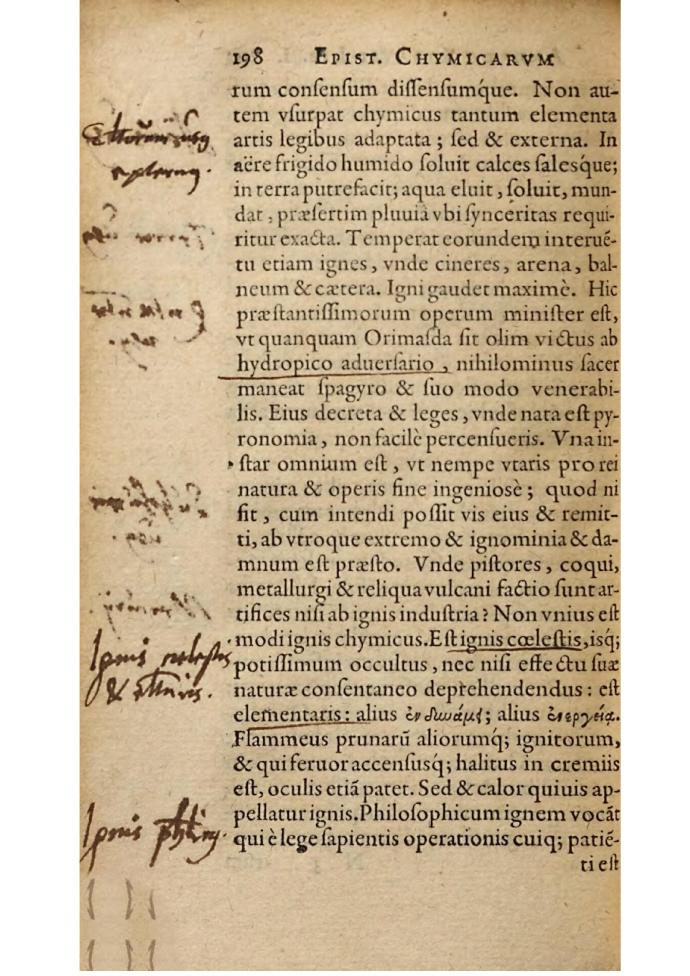 198 EPIST. CHYMICARVM
rum conſenſum diſſenſumq́ue. Non au-
tem vſurpat chymicus tantum elementa
artis legibus adaptata ; ſed & externa. In
aëre frigido humido ſoluit calces ſalesq́ue;
in terra putrefacit; aqua eluit, ſoluit, mun-
dat, præſertim pluuia vbi ſynceritas requi-
ritur exacta. Temperat eorundem interué-
tu etiam ignes, vnde cineres, arena, bal-
neum & cætera. Igni gaudet maximè. Hic
præſtantiſſimorum operum miniſter eſt,
vt quanquam Orimaſda ſit olim victus ab
hydropico aduerſario, nihilominus ſacer
maneat ſpagyro & ſuo modo venerabi-
lis. Eius decreta & leges, vnde nata eſt py-
ronomia, non facilè percenſueris. Vna in-
ſtar omnium eſt, vt nempe vtaris pro rei
natura & operis fine ingeniosè; quod ni
fit, cum intendi poſſit vis eius & remit-
ti, ab vtroque extremo & ignominia & da-
mnum eſt præſto. Vnde piſtores, coqui,
metallurgi & reliqua vulcani factio ſunt ar-
tifices niſi ab ignis induſtria? Non vnius eſt
modi ignis chymicus. Eſt ignis cœleſtis, isq;
potiſſimum occultus, nec niſi effectu ſuæ
naturæ conſentaneo deprehendendus: eſt
elementaris: alius ἐν δυνάμει; alius ἐνεργείᾳ.
Flammeus prunarū aliorumq́; ignitorum,
& qui feruor accenſusq́; halitus in cremiis
eſt, oculis etiā patet. Sed & calor quiuis ap-
pellatur ignis. Philoſophicum ignem vocāt
qui è lege ſapientis operationis cuiq; patiē-
ti eſt
Ignis
&
Ignis